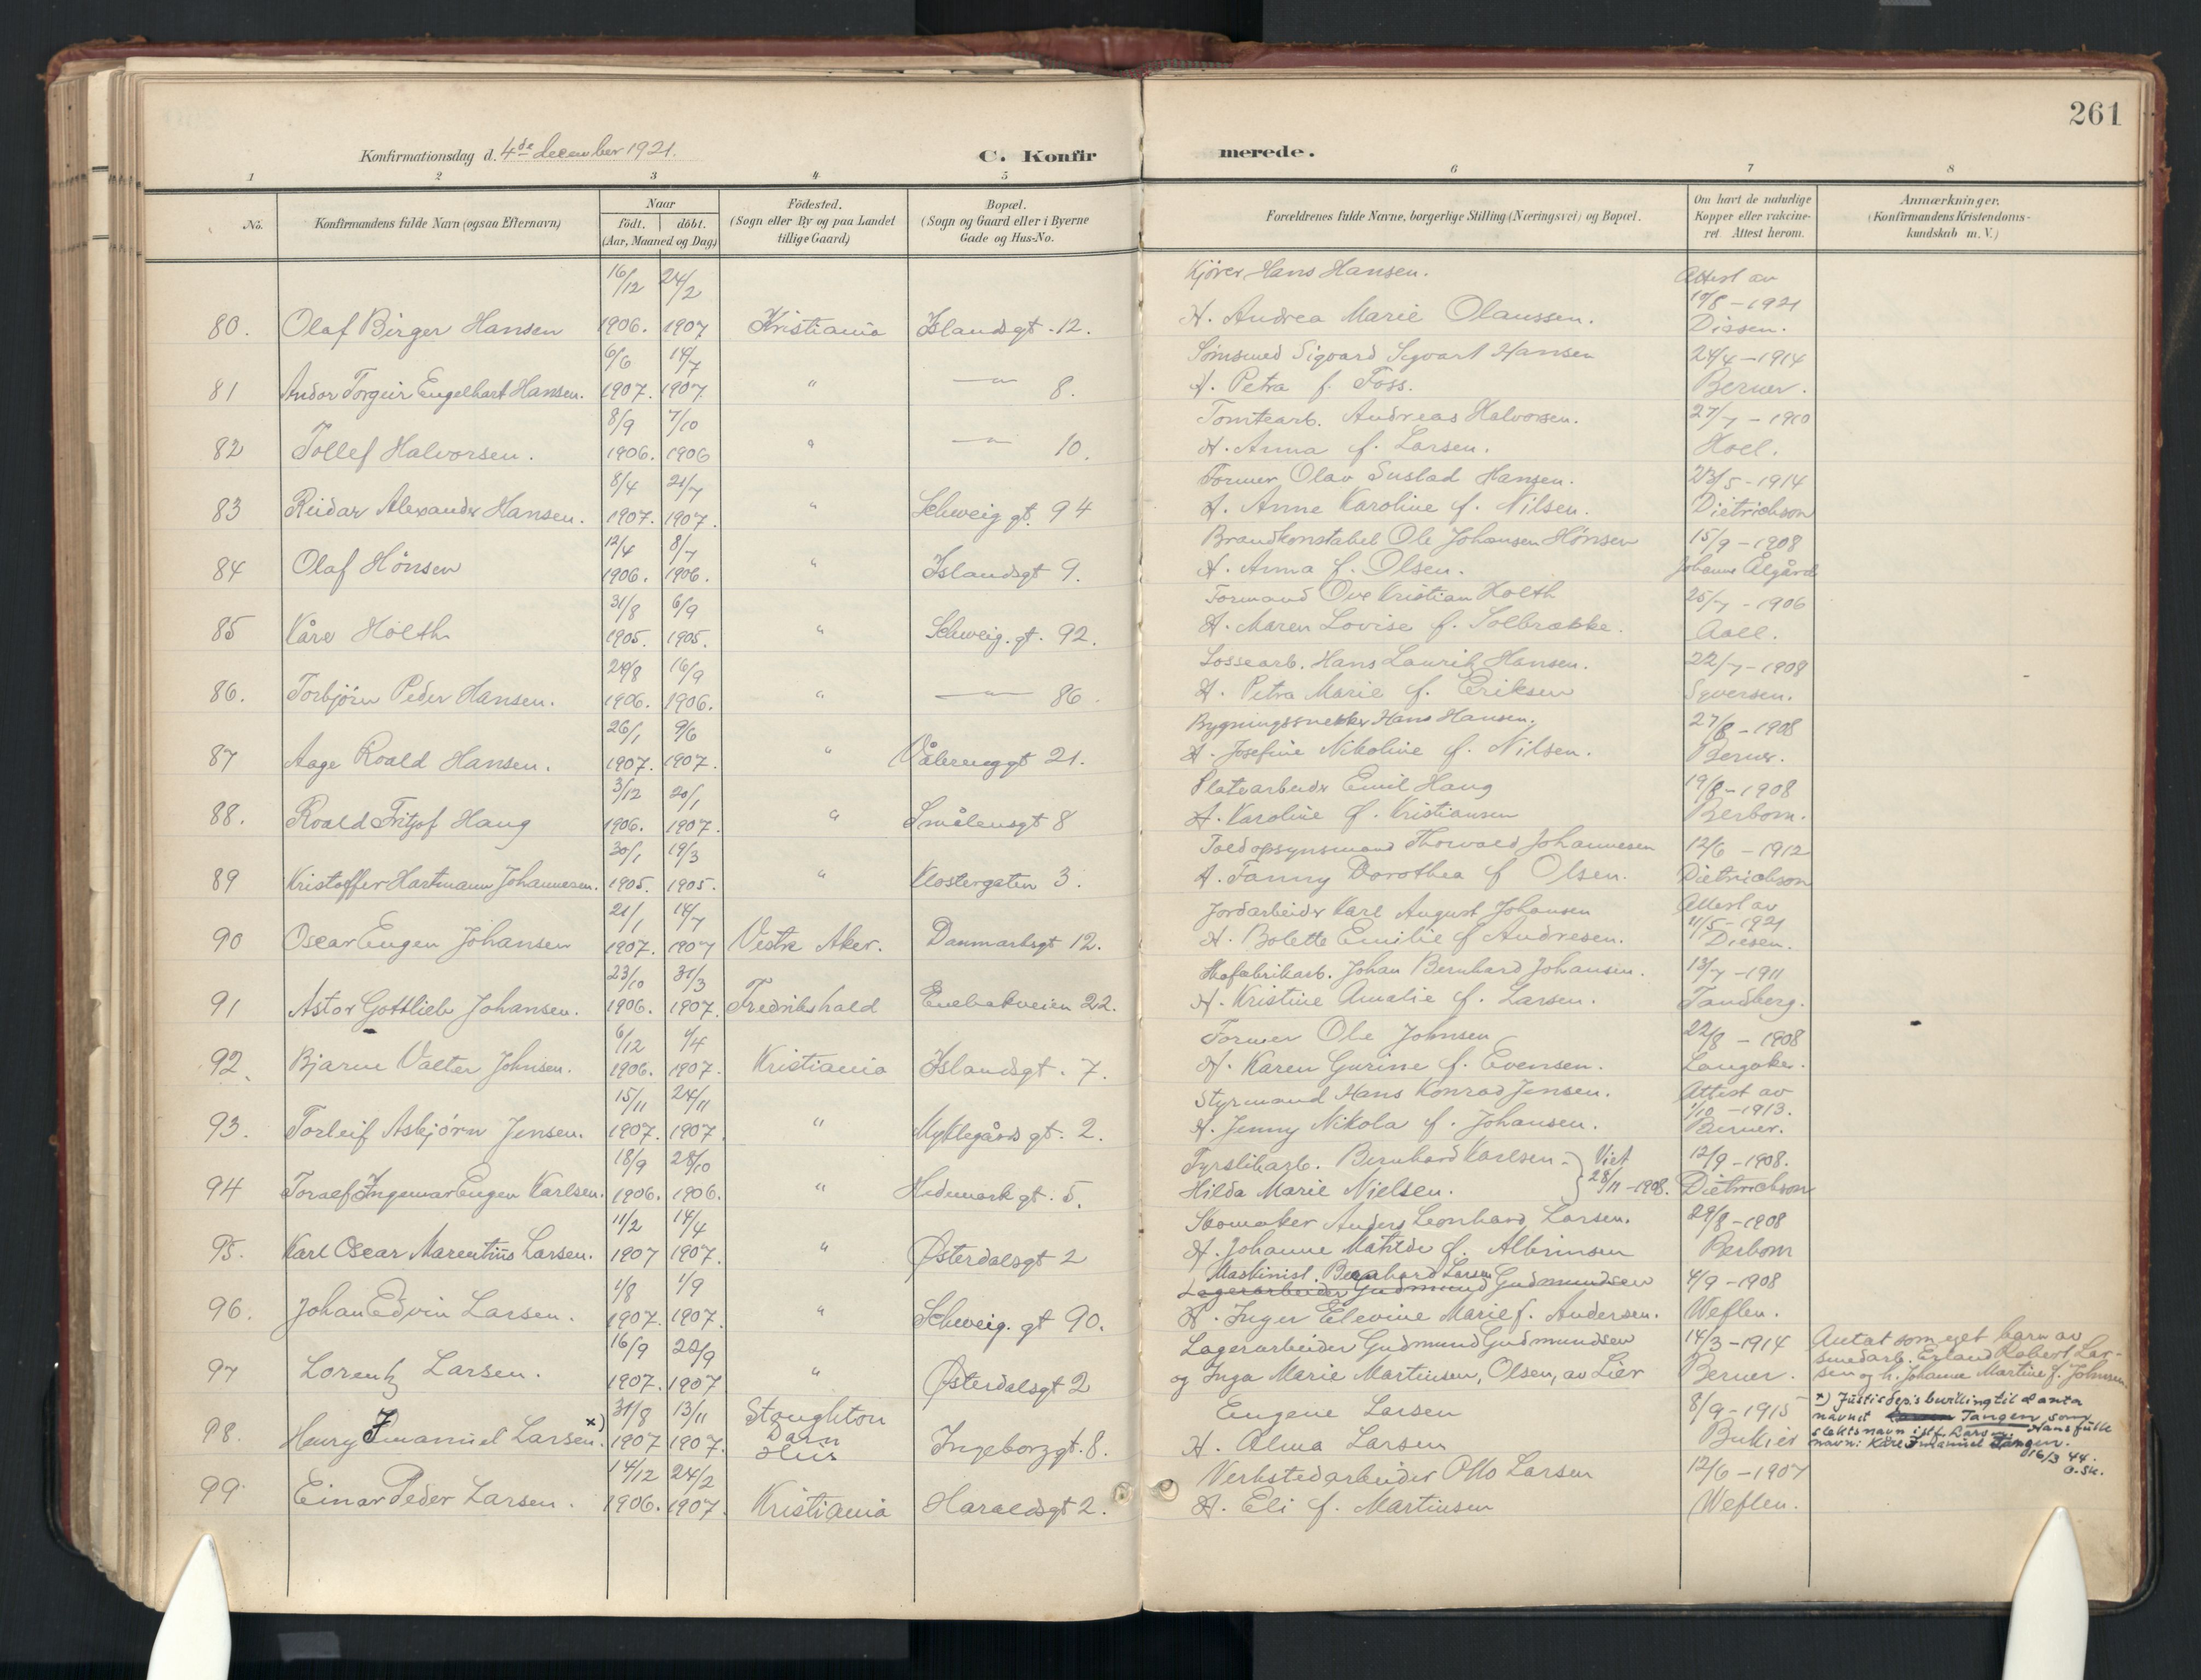 261
Konfirmationsdag d. 4de december 1921.
C. Konfirmerede.
1 2 3 4 5 6 7 8
No.
Konfirmandens fulde Navn (ogsaa Efternavn)
Naar
født. døbt.
(Aar, Maaned og Dag)
Födested.
(Sogn eller By og paa Landet
tillige Gaard)
Bopæl.
(Sogn og Gaard eller i Byerne
Gade og Hus-No.
Forældrenes fulde Navne, borgerlige Stilling (Næringsvei) og Bopæl.
Om havt de naturlige
Kopper eller vakcine-
ret Attest herom.
Anmærkninger.
(Konfirmandens Kristendoms-
kundskab m. V.)
16/12 24/2 Kjører Hans Hansen. Attest av
80. Olaf Birger Hansen 1906. 1907 Kristiania Islandsgt. 12. H. Andrea Marie Olaussen. 1921 Dissen.
6/6 14/7 Sømsmed Sigvard Sigvart Hansen 24/4-1914
81 Andor Torgeir Engelhart Hansen. 1907. 1907 " —"— 8. H. Petra f. Foss. Berner.
8/9 7/10 Tomtearb. Andreas Halvorsen. 27/7-1910
82 Tollef Halvorsen. 1906. 1906 " —"— 10. H. Anna f. Larsen. Hoel.
8/4 21/7 Former Olav Sustad Hansen. 23/5-1914
83 Reidar Alexander Hansen. 1907. 1907. " Schweig gt. 94 H. Anne Karoline f. Nilsen. Dietrichson
12/4 8/7 Brandkonstabel Ole Johansen Hønsen 15/9-1908
84 Olaf Hønsen 1906. 1906. " Islandsgt 9. H. Anna f. Olsen. Johanne Elgård
31/8 6/9 Formand Ove Kristian Holth 25/7-1906
85 Kåre Holth 1905. 1905. " Schweig. gt. 92. H. Maren Lovise f. Solbrække. Aall.
29/8 16/9 Lossearb. Hans Laurits Hansen. 22/7-1908
86. Torbjørn Peder Hansen. 1906. 1906. " —"— 86. H. Petra Marie f. Eriksen Syversen.
26/1 9/6 Bygningssnekker Hans Hansen. 27/8-1908
87 Aage Roald Hansen. 1907. 1907. " Vålerenggt 21. H. Josefine Nikoline f. Nilsen. Berner.
3/12 20/1 Platearbeider Emil Haug 19/8-1908
88. Roald Fritjof Haug 1906. 1907. " Smålensgt 8 H. Karoline f. Kristiansen Berbom.
30/1 19/3 Toldopsynsmand Thorvald Johannesen 12/6-1912
89 Kristoffer Hartmann Johannesen. 1905. 1905. " Klostergaten 3. H. Fanny Dorothea f Olsen. Dietrichson
21/1 14/7 Jordarbeider Karl August Johansen Attest av 11/5-1921
90 Oscar Eugen Johansen 1907. 1907 Vestre Aker. Danmarksgt 12. H. Bolette Emilie f Andresen. Diesen.
23/10 31/3 Skofabrikarb. Johan Bernhard Johansen. 13/7-1911
91 Astor Gottlieb Johansen. 1906. 1907. Fredrikshald Enebakveien 22. H. Kristine Amalie f. Larsen. Tandberg.
6/12 1/4 Former Ole Johnsen 22/8-1908
92. Bjarne Valter Johnsen. 1906. 1907. Kristiania Islandsgt. 7. H. Karen Gurine f. Evensen. Langaker.
15/11 24/11 Styrmand Hans Konrad Jensen. Attest av 1/10-1913.
93. Torleif Asbjørn Jensen. 1907. 1907. " Myklegårds gt. 2. H. Jenny Nikola f. Johansen. Berner.
18/9 28/10 Fyrstikarb. Bernhard Karlsen. } Viet 12/9-1908.
94 Toralf Ingemar Eugen Karlsen. 1906. 1906. " Hedemark gt. 5. Hilda Marie Nielsen. 28/11-1908. Dietrichson
11/2 14/4 Skomaker Anders Leonhard Larsen. 29/8-1908
95. Karl Oscar Marentius Larsen. 1907 1907. " Østerdalsgt 2 H. Johanne Matilde f. Albrimsen Berbom
Maskinist. Bernhard Larsen
1/8 1/9 Lagerarbeider Gudmund Gudmundsen 4/9-1908
96. Johan Edvin Larsen. 1907. 1907. " Schweig. gt 90. H. Inger Elevine Marie f. Andersen. Weflen.
16/9 22/9 Lagerarbeider Gudmund Gudmundsen 14/3-1914 Antat som eget barn av
97 Lorentz Larsen. 1907. 1907 " Østerdalsgt 2 og Inga Marie Martinsen, Olsen, av Lier Berner. smedarb. Erland Robert Lar-
sen og h. Johanne Martine f. Johnsen.
31/8 13/11 Stoughton Eugene Larsen 8/9-1915 x) Justisdep's bevilling til å anta
98. Henry Imanuel Larsen. x) 1907 1907. Darn Ingeborggt. 8. H. Alma Larsen navnet Tangen som
slektsnavn istf. Larsen. Hans fulle
navn: Kåre Imanuel Tangen.
16/3 44.
O.Sk.
14/12 24/2 Verkstedarbeider Otto Larsen 12/6-1907
99. Einar Peder Larsen. 1906. 1907. Kristiania Haraldsgt 2. H. Eli f. Martinsen Weflen.